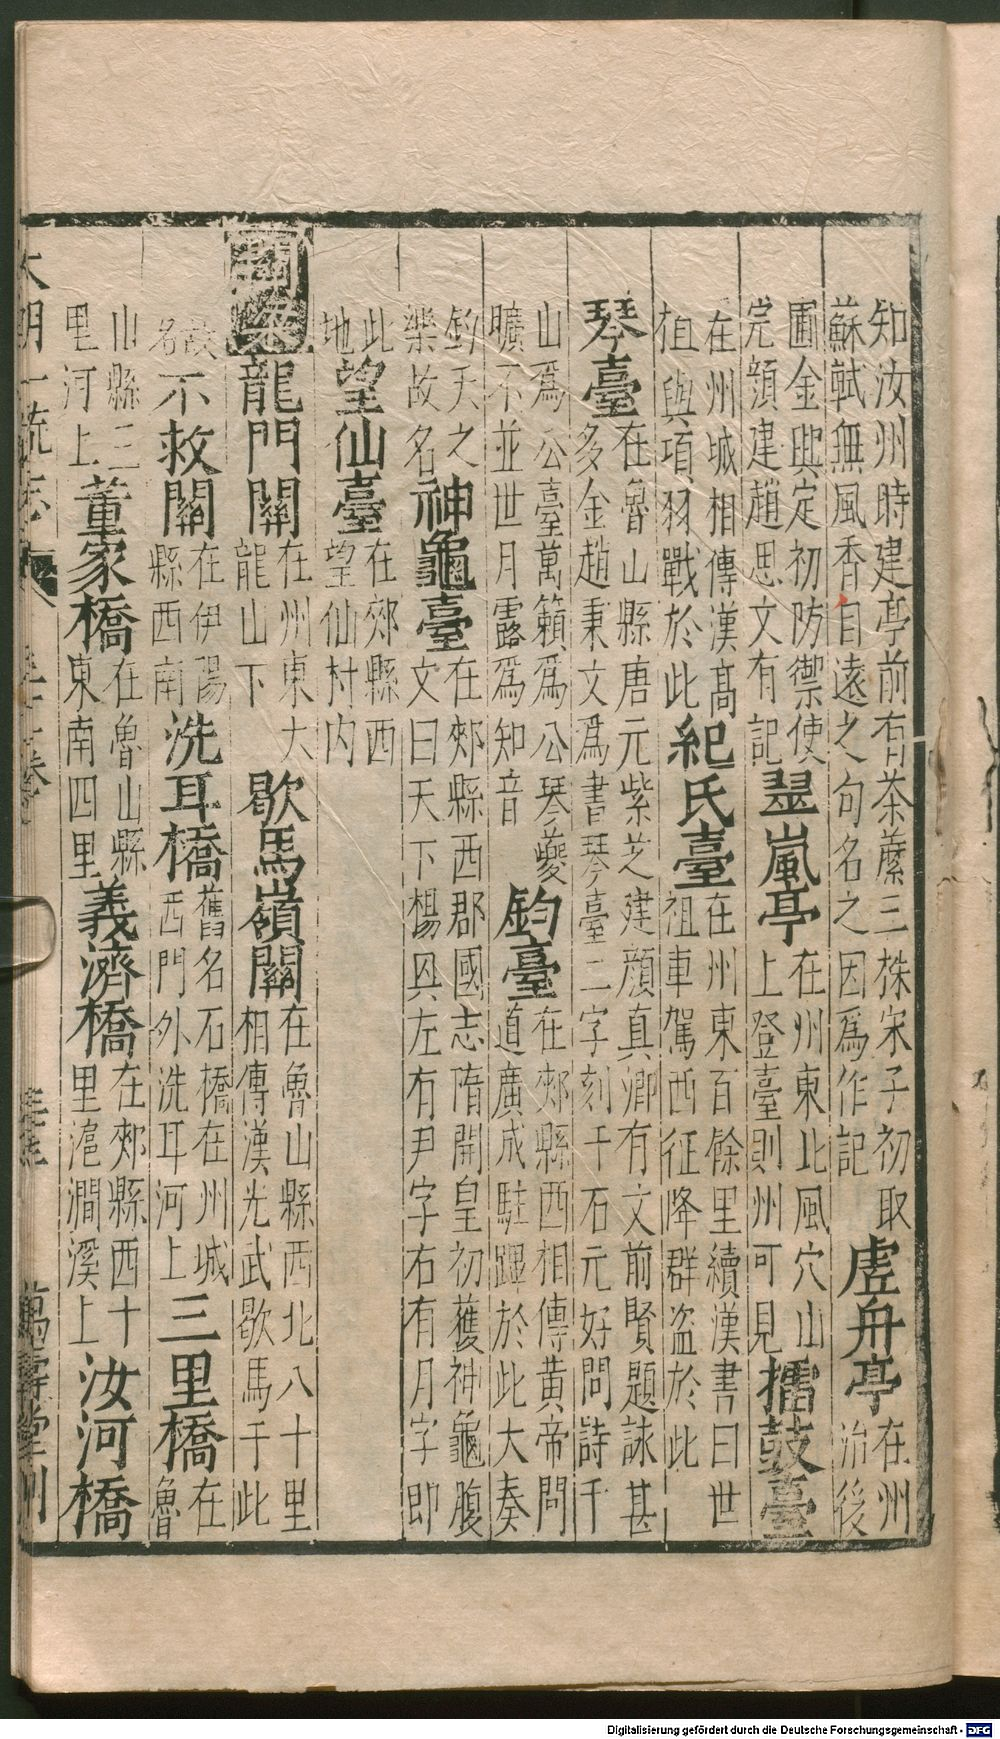 知汝州時建亭前有荼蘼三株宋子初取
蘇軾無風香自遠之句名之因為作記
虚舟亭
在州
治後
圃金興定初防禦使
完顔建趙思文有記
翠嵐亭
在州東北風穴山
上登臺則州可見
擂鼓臺
在州城相傳漢高
祖與項羽戰於此
紀氏臺
在州東百餘里續漢書曰世
祖車駕西征降群盗於此
琴臺
在魯山縣唐元紫芝建顔真卿有文前賢題詠甚
多金趙秉文為書琴臺二字刻于石元好問詩千
山為公臺萬籟為公琴夔
曠不並世月露為知音
鈞臺
在郟縣西相傳黄帝問
道廣成駐蹕於此大奏
鈞天之
樂故名
神龜臺
在郟縣西郡國志隋開皇初獲神龜腹
文曰天下楊㒷左有尹字右有月字即
此
地
望仙臺
在郟縣西
望仙村内
關梁
龍門關
在州東大
龍山下
歇馬嶺關
在魯山縣西北八十里
相傳漢光武歇馬于此
故
名
不救關
在伊陽
縣西南
洗耳橋
舊名石橋在州城
西門外洗耳河上
三里橋
在
魯
山縣三
里河上
董家橋
在魯山縣
東南四里
義濟橋
在郟縣西十
里滬澗溪上
汝河橋
大明一統志
萬壽堂刊
Digitalisierung gefördert durch die Deutsche Forschungsgemeinschaft - DFG